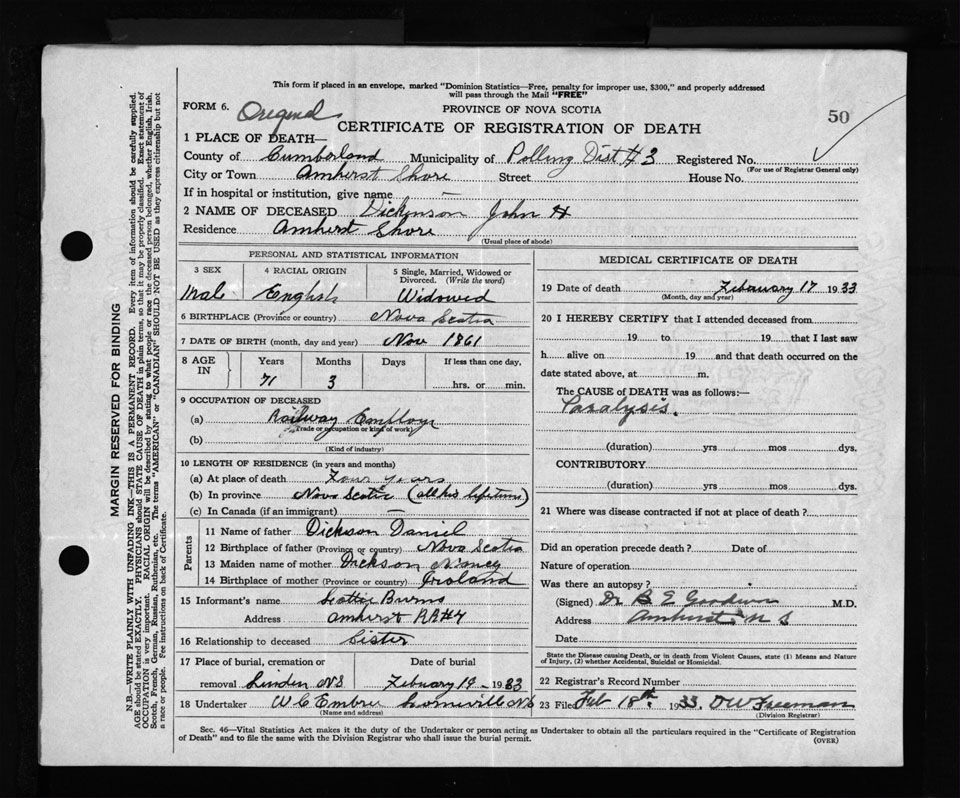 This form if placed in an envelope, marked "Dominion Statistics—Free, penalty for improper use, $300," and properly addressed
will pass through the Mail "FREE"
FORM 6. Original
PROVINCE OF NOVA SCOTIA
50
CERTIFICATE OF REGISTRATION OF DEATH
1 PLACE OF DEATH—
County of Cumberland Municipality of Polling Dist # 3 Registered No.
(For use of Registrar General only)
City or Town Amherst Shore Street House No.
If in hospital or institution, give name —
2 NAME OF DECEASED Dickinson John H
Residence Amherst Shore
(Usual place of abode)
PERSONAL AND STATISTICAL INFORMATION
3 SEX 4 RACIAL ORIGIN 5 Single, Married, Widowed or Divorced. (Write the word)
Male English Widowed
6 BIRTHPLACE (Province or country) Nova Scotia
7 DATE OF BIRTH (month, day and year) Nov 1861
8 AGE IN Years Months Days If less than one day,
71 3 hrs. or min.
9 OCCUPATION OF DECEASED
(a) Railway Employe
(Trade or occupation or kind of work)
(b)
(Kind of industry)
10 LENGTH OF RESIDENCE (in years and months)
(a) At place of death Four years
(b) In province Nova Scotia (all his lifetime)
(c) In Canada (if an immigrant) —
Parents
11 Name of father Dickson Daniel
12 Birthplace of father (Province or country) Nova Scotia
13 Maiden name of mother Dickson Nancy
14 Birthplace of mother (Province or country) Ireland
15 Informant's name Burns
Address Amherst RR#4
16 Relationship to deceased Sister
17 Place of burial, cremation or removal Linden N.S. Date of burial February 19 1933
18 Undertaker W C Embree NS
(Name and address)
MEDICAL CERTIFICATE OF DEATH
19 Date of death February 17 1933
(Month, day and year)
20 I HEREBY CERTIFY that I attended deceased from
19 to 19 that I last saw
h alive on 19 and that death occurred on the
date stated above, at m.
The CAUSE OF DEATH was as follows:—
Paralysis.
(duration) yrs mos dys.
CONTRIBUTORY
(duration) yrs mos dys.
21 Where was disease contracted if not at place of death?
Did an operation precede death? Date of
Nature of operation
Was there an autopsy?
(Signed) Dr B E Goodwin M.D.
Address Amherst N S
Date
State the Disease causing Death, or in death from Violent Causes, state (1) Means and Nature
of Injury, (2) whether Accidental, Suicidal or Homicidal.
22 Registrar's Record Number
23 Filed Feb 18th. 1933. D W Freeman
(Division Registrar)
Sec. 46—Vital Statistics Act makes it the duty of the Undertaker or person acting as Undertaker to obtain all the particulars required in the "Certificate of Registration
of Death" and to file the same with the Division Registrar who shall issue the burial permit.
(OVER)
MARGIN RESERVED FOR BINDING
N.B.—WRITE PLAINLY WITH UNFADING INK—THIS IS A PERMANENT RECORD. Every item of information should be carefully supplied.
AGE should be stated EXACTLY. PHYSICIANS should STATE CAUSE OF DEATH in plain terms, so that it may be properly classified. Exact statement of
OCCUPATION is very important. RACIAL ORIGIN will be described by stating to what people or race the deceased person belonged, whether English, Irish,
Scotch, French, German, Russian, Ruthenian, etc. The terms "AMERICAN" or "CANADIAN" SHOULD NOT BE USED as they express citizenship but not
a race or people. See instructions on back of Certificate.